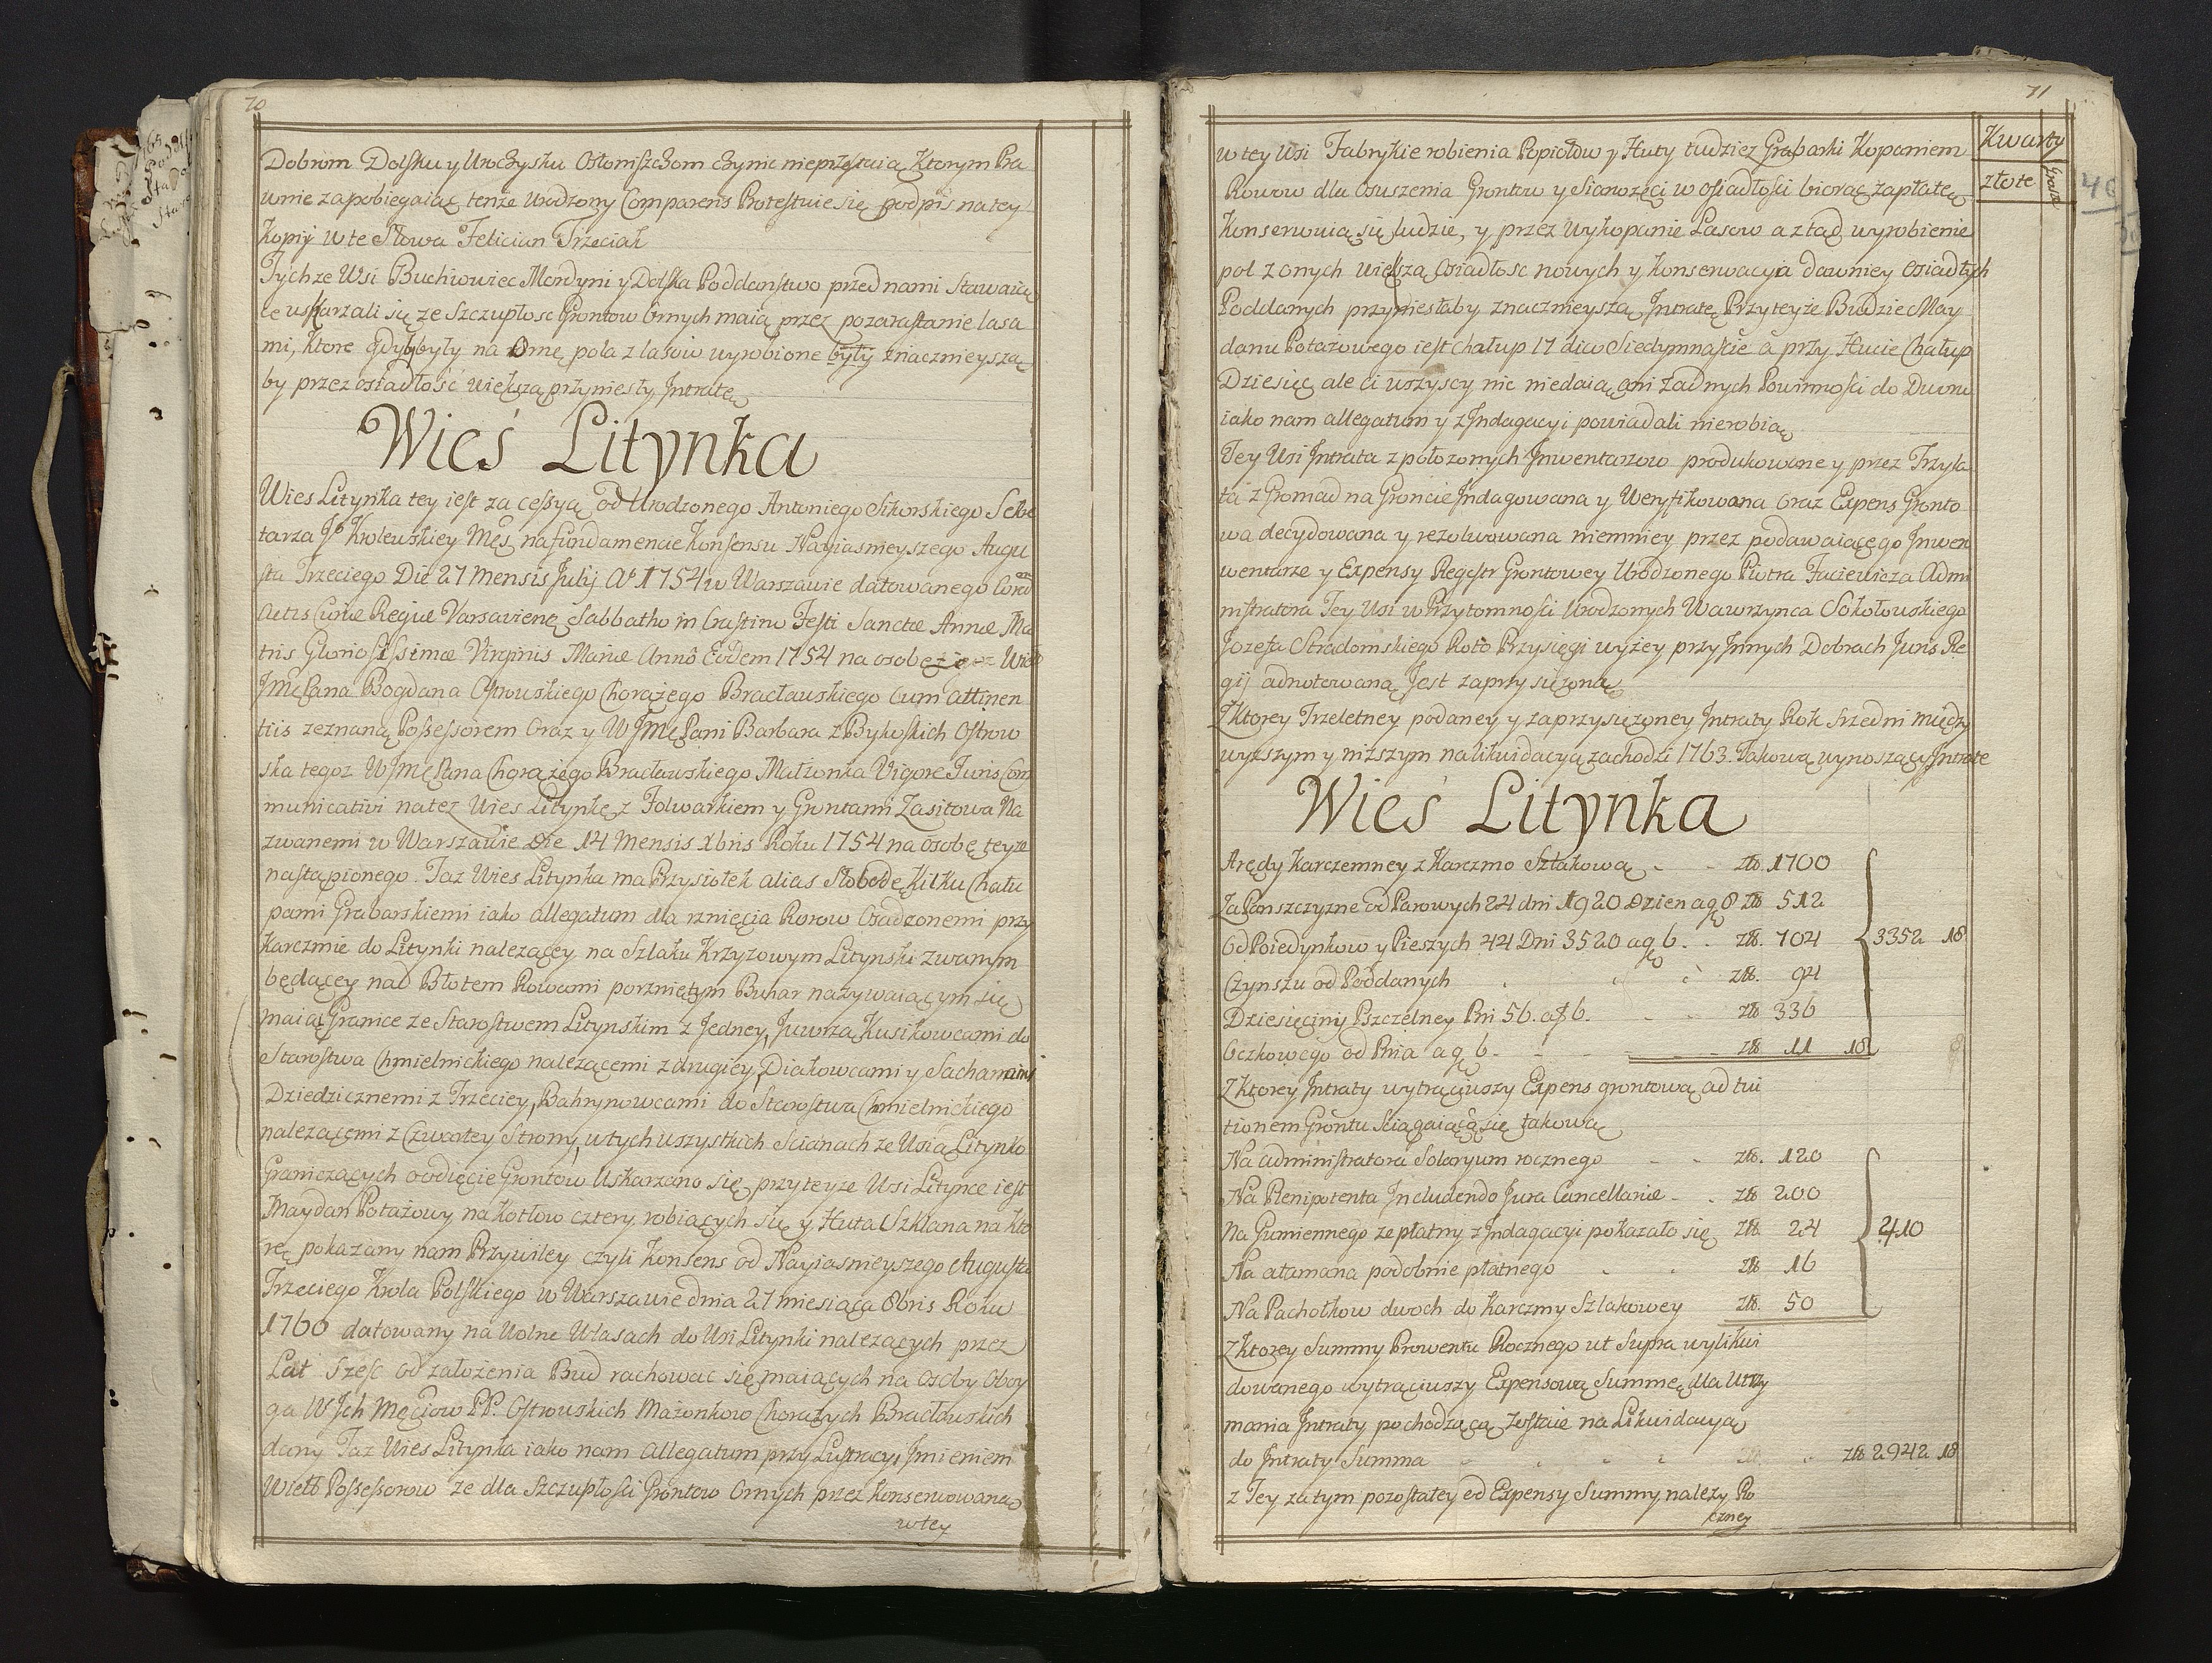 70
Dobrom Dolsku y Uroczysku Osłoniszchom czynic nieprzestaią, Ktorym Pra
wnie zapobiegaiąc tenże Urodzony Comparens Protestuie się podpis na tey
Kopij w te Słowa Felician Trzeciak
Tychże Wsi Buchiowiec Mendyni y Dolska Poddanstwo przed nami Stawaią
ce uskarzali się ze Szczupłosc Grontow Ornych maią przez pozarastanie lasa
mi, Ktore gdyby były na Orne pola z lasow wyrobione były znacznieyszą
by przez osiadłość większą przyniesły Jntratę
Wieś Litynka
Wies Litynka tey iest za cessyą od Urodzonego Antoniego Sikorskiego Sekre
tarza Jo Krolewskiey Mći na fundamencie Konsensu Nayiasnieyszego Augu
sta Trzeciego Die 27 Mensis Julij Ao 1754 w Warszawie datowanego Coram
Actis Curiæ Regiæ Varsavienę Sabbatho in Crastino Festi Sanctæ Annæ Ma
tris Gloriosissimæ Virginis Mariæ Annô Eodem 1754 na osobę Wiel
JMć Pana Bogdana Ostrowskiego Chorążego Bracławskiego Cum attinen
tiis zeznaną Possessorem Oraz y WJMć Pani Barbara z Bykoskich Ostrow
ska tegoz WJMć Pana Chorążego Bracławskiego Małżonka Vigore Juris Com
municativi na tez Wies Litynkę z Folwarkiem y Grontami Zasitowa Na
zwanemi w Warszawie Die 14 Mensis Xbris Roku 1754 na osobę teyże
nastąpionego. Taz Wies Litynka ma Przysiołek alias Słobodę Kilku Chału
pami Grabarskiemi iako allegatum dla rznięcia Rorow Osadzonemi przy
Karczmie do Litynki nalezącey na Szlaku Krzyzowym Litynski zwanym
będącey nad Błotem Rowami porzniętym Buhar nazywaiącym się
maią Granice ze Starostwem Litynskim z Jedney, Juwrza Kusikowcami do
Starostwa Chmielnickiego nalezącemi z drugiey, Diakowcami y Sachanami
Dziedzicznemi z Trzeciey, Bahrynowcami do Starostwa Chmielnickiego
nalezącemi z Czwartey Strony, w tych wszystkich Scianach ze Wsią Litynką
Graniczących o odięcie Grontow Uskarzano się, przy teyze Wsi Litynce iest
Maydan Potażowy na Kotłow cztery robiących się y Huta Szklana na Kto
rę pokazany nam Przywiley czyli Konsens od Nayiasnieyszego Augusta
Trzeciego Krola Polskiego w Warszawie dnia 27 miesiąca 8bris Roku
1760 datowany na Wolne w Lasach do Wsi Litynki nalezących przez
Lat Szesc od założenia Bud rachowac się maiących na osoby oboy
ga WJch Męciow PP. Ostrowskich Małżonkow Chorążych Bracławskich
dany Taz Wies Litynka iako nam allegatum przy Lustracyi Jmieniem
Wielb Possessorow ze dla Szczupłosci Grontow Ornych przez Konserwowaną
w tey
71
Kwarty
złote
Grosze
w tey Wsi Fabrykie robienia Popiołow y Huty tudziez Grabarki Kopaniem
Rowow dla Osuszenia Grontow y Sianozęci w osiadłości biorąc zapłatę
Konserwuią się ludzie, y przez wykopanie Lasow a ztąd wyrobienie
pol z onych większą Osiadłosc nowych y Konserwacyia dawniey Osiadłych
Poddanych przyniesłaby znacznieyszą Jntratę Przy teyże Budzie May
danu Potażowego iest Chałup 17 diw Siedymnaście a przy Hucie Chałup
Dziesięc ale ci wszyscy nic niedaią ani żadnych Powinnosci do Dworu
iako nam allegatum y z Jndagacyi powiadali nierobią
Tey Wsi Jntrata z połozonych Jnwentarzow produkowane y przez Trzyla
ta z Gromad na Groncie Jndagowana y Weryfikowana Oraz Expens Gronto
wa decydowana y rezolwowana niemniey przez podawaiącego Jnwen
wentarze y Expensy Regestr Grontowey Urodzonego Piotra Faciewicza Admi
nistratora Tey Wsi w Przytomnosci Urodzonych Wawrzynca Sokołowskiego
Jozefa Stradomskiego Rotą Przysięgi wyżey przy Jnnych Dobrach Juris Re
gij adnotowaną Jest zaprzysiężoną
Z Ktorey Trzeletney podaney y zaprzysiężoney Jntraty Rok Srzedni między
wyższym y niższym na likwidacyą zachodzi 1763. Takową wynoszący Jntratę
Wieś Litynka
Arędy Karczemney z Karczmo Szlakową - - zło. 1700
Za Panszczyznę od Parowych 24 dni 1920 Dzien a gr 8 zło 512
Od Poiedynkow y Pieszych 44 Dni 3520 a gr 6. - zło. 704 3352 18
Czynszu od Poddanych zło. 94
Dziesięciny Pszczelney Pni 56. a f 6. - - zło 336
Oczkowego od Pnia a gr 6 - - - zło 11 18
Z Ktorey Jntraty wytrąciwszy Expens grontową ad tui
tionem Grontu sciągaiącą się takową
Na administratora Solaryum rocznego - - zło. 120
Na Plenipotenta Jncludendo Jura Cancellariæ - . zło 200
Na Gumiennego ze płatny z Jndagacyi pokazało się zło 24 410
Na atamana podobnie płatnego zło 16
Na Pachołkow dwoch do Karczmy Szlakowey zło. 50
Z Ktorey Summy Prowentu Rocznego ut Supra wylikwi
dowanego wytrąciwszy Expensową Summę dla Utrzy
mania Jntraty pochodzącą zostaie na Likwidacyą
do Jntraty Summa zło 2942 18
z Tey zatym pozostałey od Expensy Summy nalezy Ro
czney